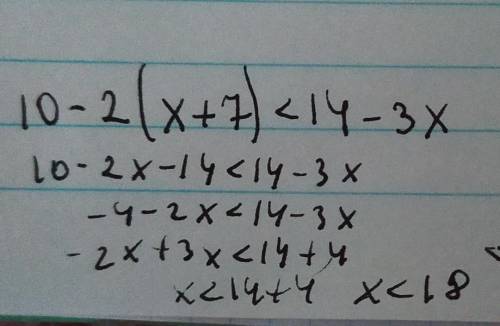 10-2(x+7)<14-3x
10-2x-14<14-3x
-4-2x<14-3x
-2x+3x<14+4
x<14+4 x<18